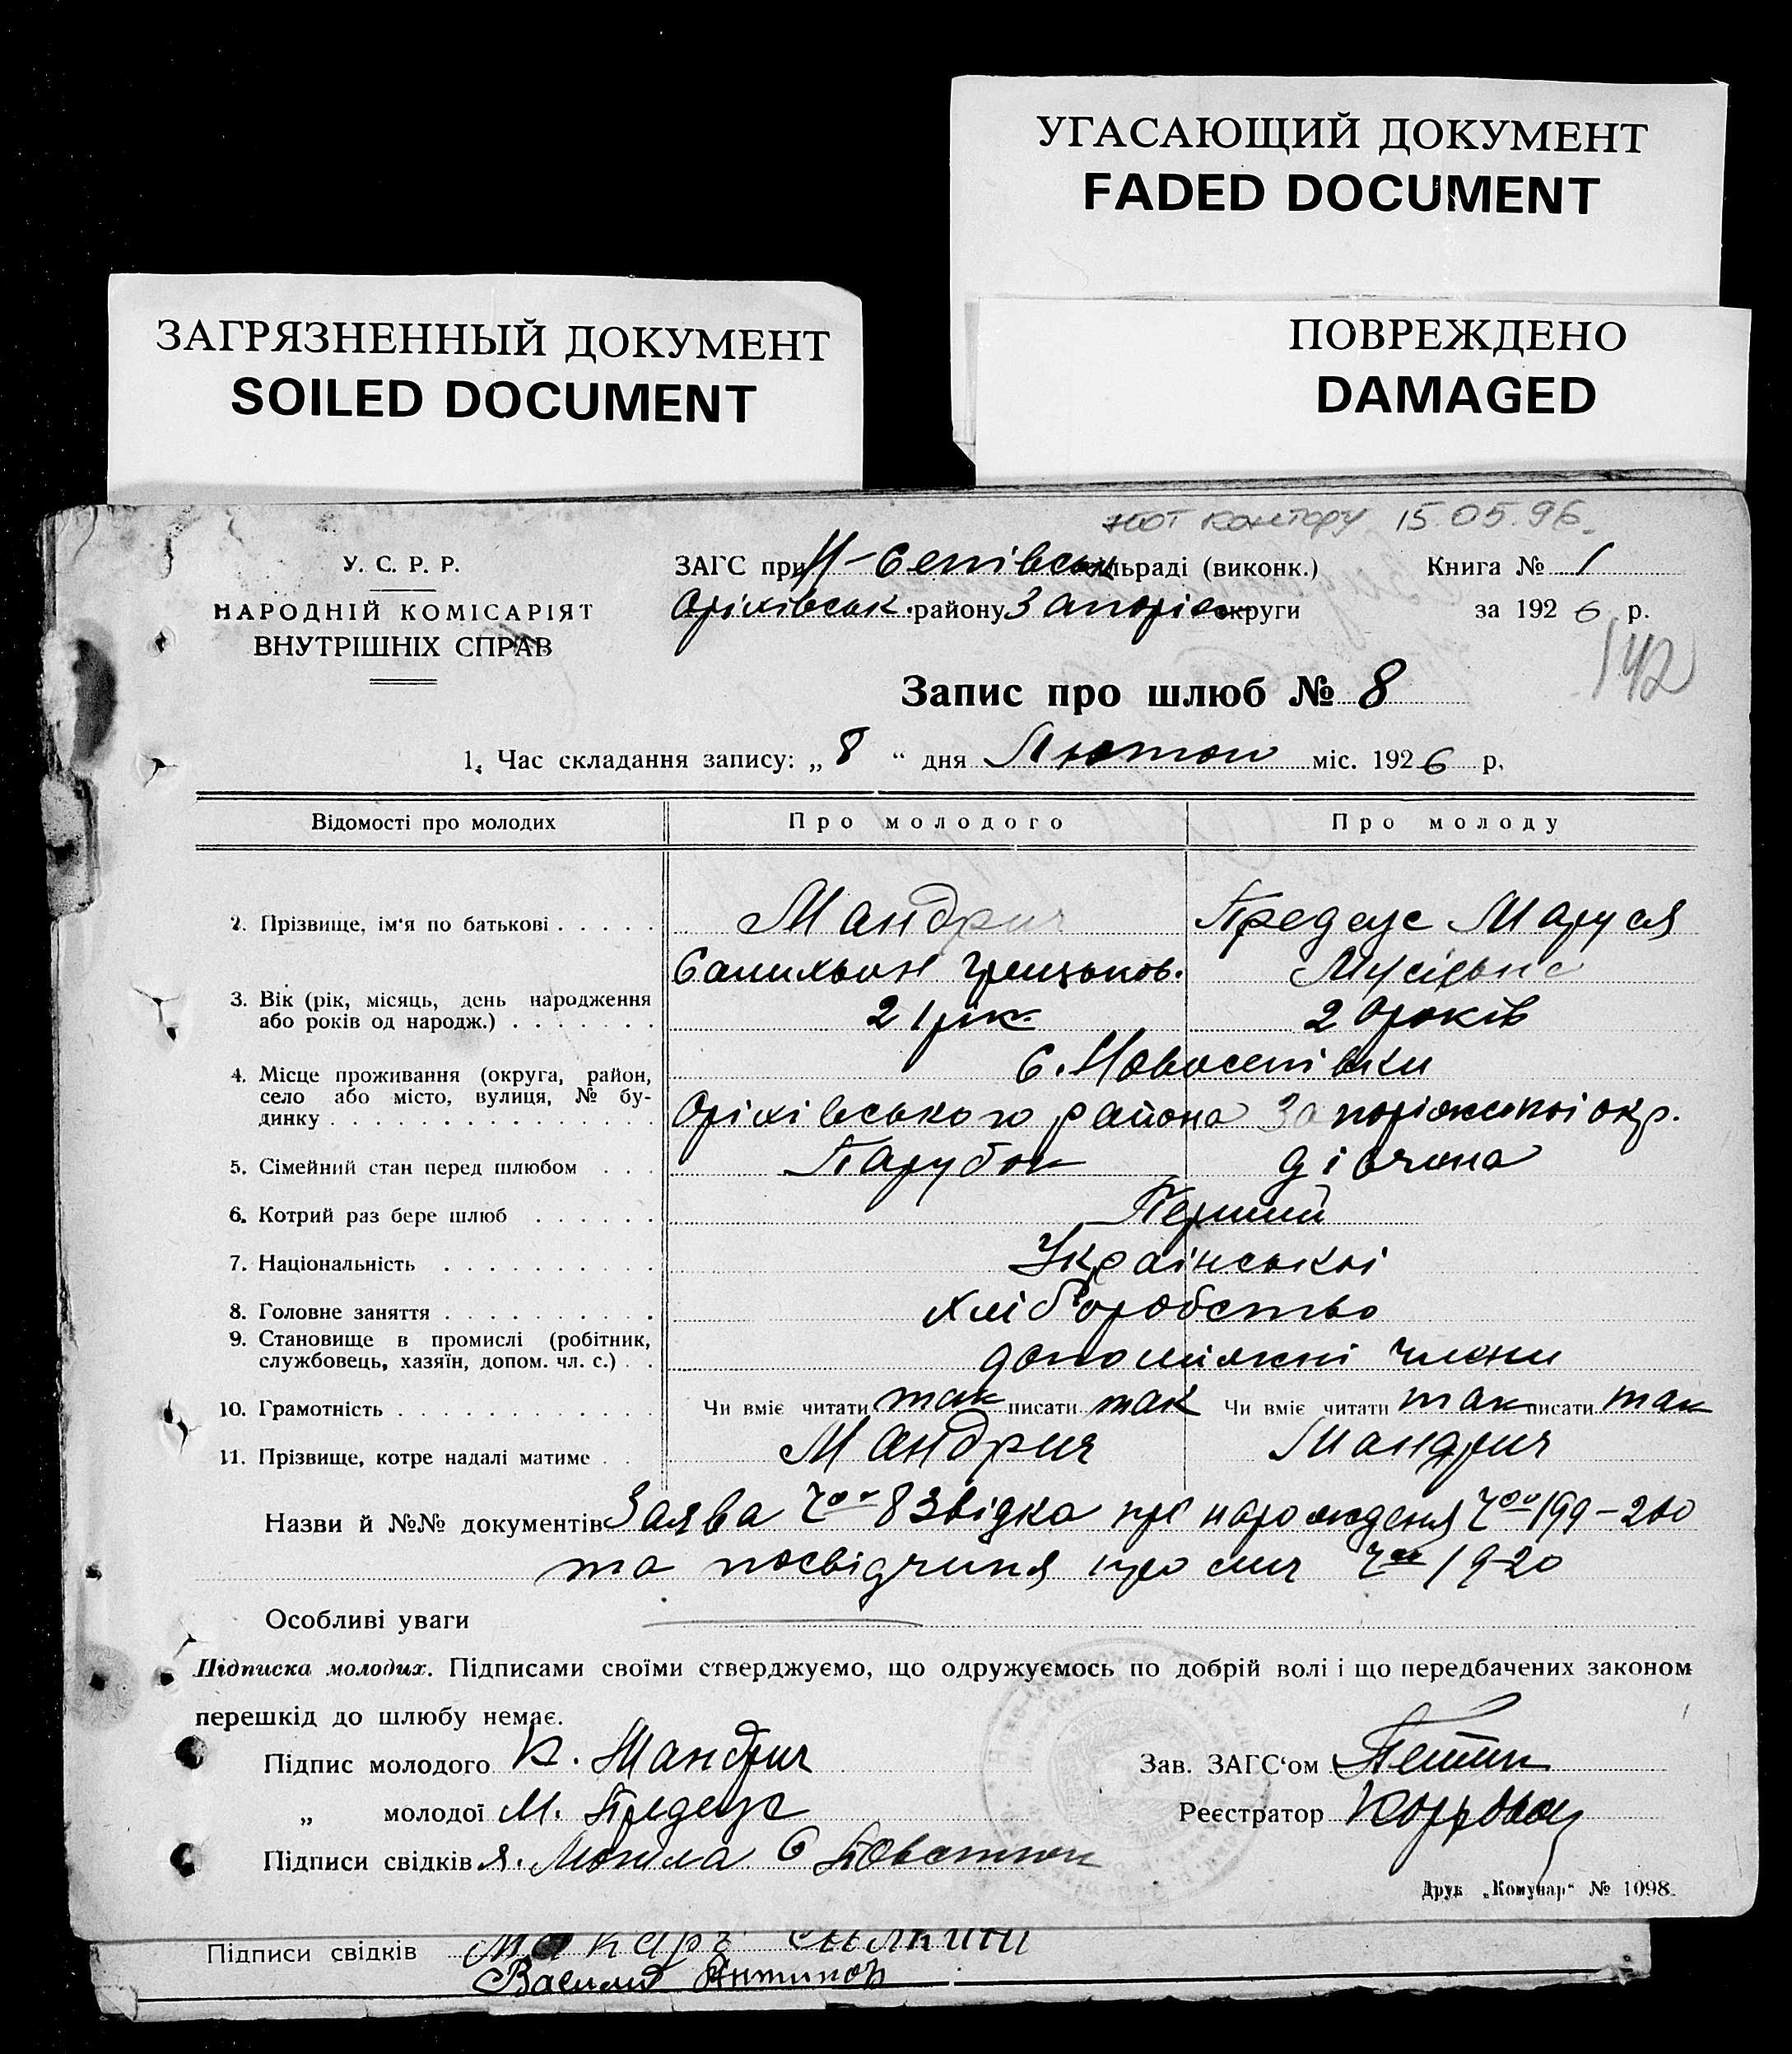 УГАСАЮЩИЙ ДОКУМЕНТ
FADED DOCUMENT
ЗАГРЯЗНЕННЫЙ ДОКУМЕНТ
SOILED DOCUMENT
ПОВРЕЖДЕНО
DAMAGED
контору 15.05.96
У. С. Р. Р.
НАРОДНІЙ КОМІСАРІЯТ
ВНУТРІШНІХ СПРАВ
ЗАГС при Н-Селівськ сільраді (виконк.) Книга № 1
Оріхівськ. району Запоріж округи за 1926 р.
142
Запис про шлюб № 8
1. Час складання запису: „ 8 “ дня Лютого міс. 1926 р.
Відомості про молодих Про молодого Про молоду
2. Прізвище, ім‘я по батькові Мандрич Предеус Маруся
Грицьков.
3. Вік (рік, місяць, день народження
або років од народж.) 21 рік 20 років
4. Місце проживання (округа, район, с. Новоселівки
село або місто, вулиця, № бу-
динку Оріхівського района Запоріжської окр.
5. Сімейний стан перед шлюбом Парубок дівчина
6. Котрий раз бере шлюб Перший
7. Національність Української
8. Головне заняття хліборобство
9. Становище в промислі (робітник,
службовець, хазяїн, допом. чл. с.) допоміжні члени
10. Грамотність Чи вміє читати так писати так Чи вміє читати так писати так
11. Прізвище, котре надалі матиме Мандрич Мандрич
Назви й №№ документів Заява 8 Звідка про народженя 199-200
та посвідчиня про 19-20
Особливі уваги
Підписка молодих. Підписами своїми стверджуємо, що одружуємось по добрій волі і що передбачених законом
перешкід до шлюбу немає.
Підпис молодого К. Мандрич Зав. ЗАГС‘ом
„ молодої М. Предеус Реєстратор
Підписи свідків Я. Могила
Друк „Комунар“ № 1098.
Підписи свідків Макаръ
Василий Антипов